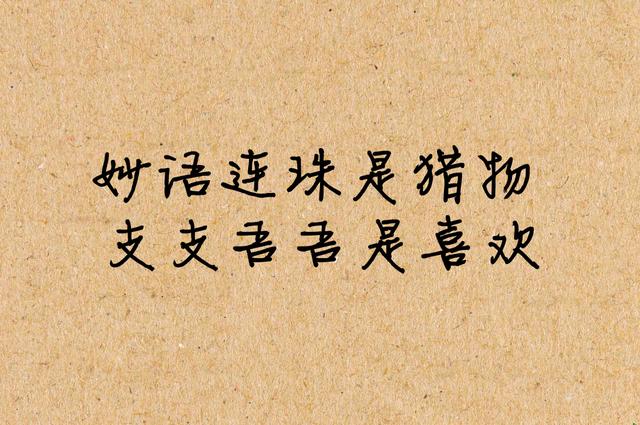 妙语连珠是猎物
支支吾吾是喜欢